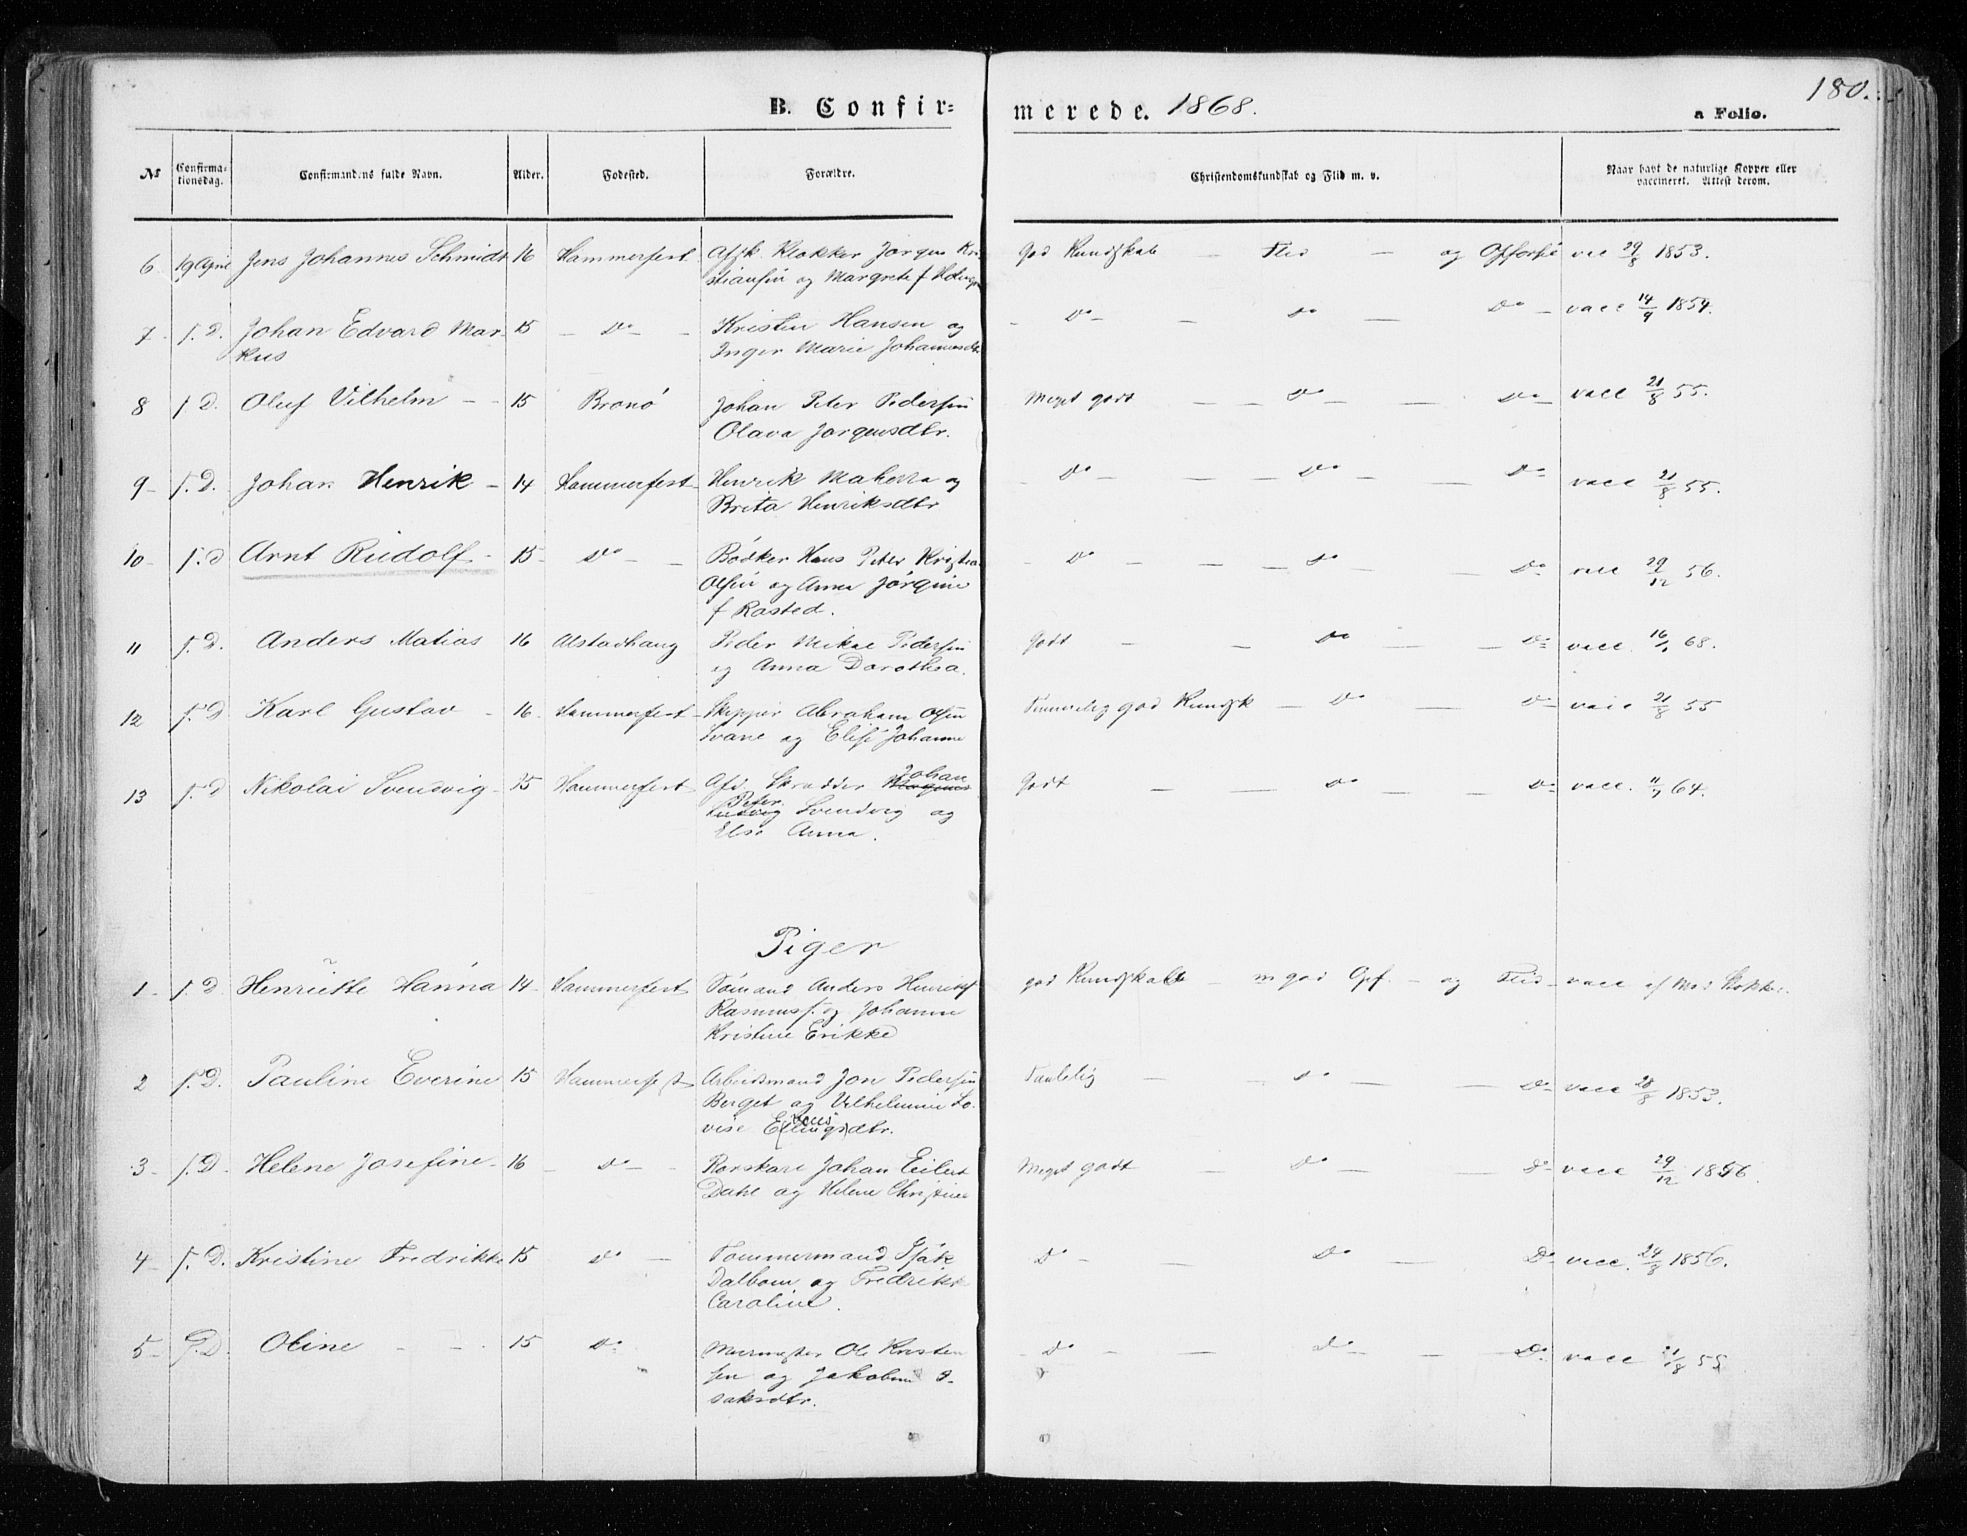 180.
B. Confir= merede. 1868. a Folio.
No
Confirma-
tionsdag.
Confirmandens fulde Navn.
Alder.
Fødested.
Forældre.
Christendomskundskab og Flid m. v.
Naar havt de naturlige Kopper eller
vaccineret. Attest derom.
6 19 April Jens Johannes Schmidt 16 Hammerfest Afsk. Klokker Jørgen Kri-
stiansen og Margrete f.
God Kundskab — Flid — og Opførsel vac 29/8 1853.
7 s. D. Johan Edvard Mar- 15 — Do — Kristen Hansen og
kus Inger Marie Johannesdtr
Do — Do — Do — vacc 14/9 1854.
8 s. D. Oluf Vilhelm — 15 Brønø Johan Peter Pedersen
Olava Jørgensdtr.
Meget godt — Do — Do — vacc 21/8 55.
9 — s. D. Johan Henrik — 14 Hammerfest Henrik og
Brita Henriksdtr
Do — Do — Do vacc 21/8 55.
10 s. D Arnt Rudolf — 15 — Do — Bødker Hans Peter Kristian
Olsen og Anna Jørgine
f Rasted.
Do — Do — Do vacc 29/12 56.
11 s. D. Anders Matias 16 Alstadhaug Peder Mikal Pedersen
og Anna Dorothea.
Godt — Do — Do vacc. 16/1 68.
12 s. D Karl Gustav — 16. Hammerfest Skipper Abraham Olsen
Svane og Elise Johanne
Temmelig god Kundsk — Do — Do vacc 21/8 55
13 s. D Nikolai Svendvig 15 Hammerfest Afd. Skrædder Johan
Peter
Ludvig Svendvig og
Else Anna.
Godt — Do — Do vacc. 11/7 64.
Piger
1 — s. D. Henriette Hanna 14 Hammerfest Sømand Anders Henrik
Rasmuss. og Johanne
Kristine Erikke
god Kundskab — m god Opf. — og Flid vacc af Mad
2 s. D. Pauline Everine 15 Hammerfest Arbeidsmand Jon Pedersen
Berget og Vilhelmine Lo-
vise Ellingsdtr.
Taalelig — Do — Do vacc 28/8 1853.
3 — s. D. Helene Josefine 16 — Do — Johan Eilert
Dahl og Helene Christine
Meget godt — Do — Do vacc 29/12 1856.
4 — s. D. Kristine Fredrikke 15 Do — Tømmermand Isak
Dalbom og Fredrikke
Caroline.
Do — Do — Do vacc. 24/8 1856.
5 — s. D. Oline — 15 Do Murmester Ole Kristen
sen og Jakobine I-
saksdtr.
Do — Do — Do vacc 21/8 55